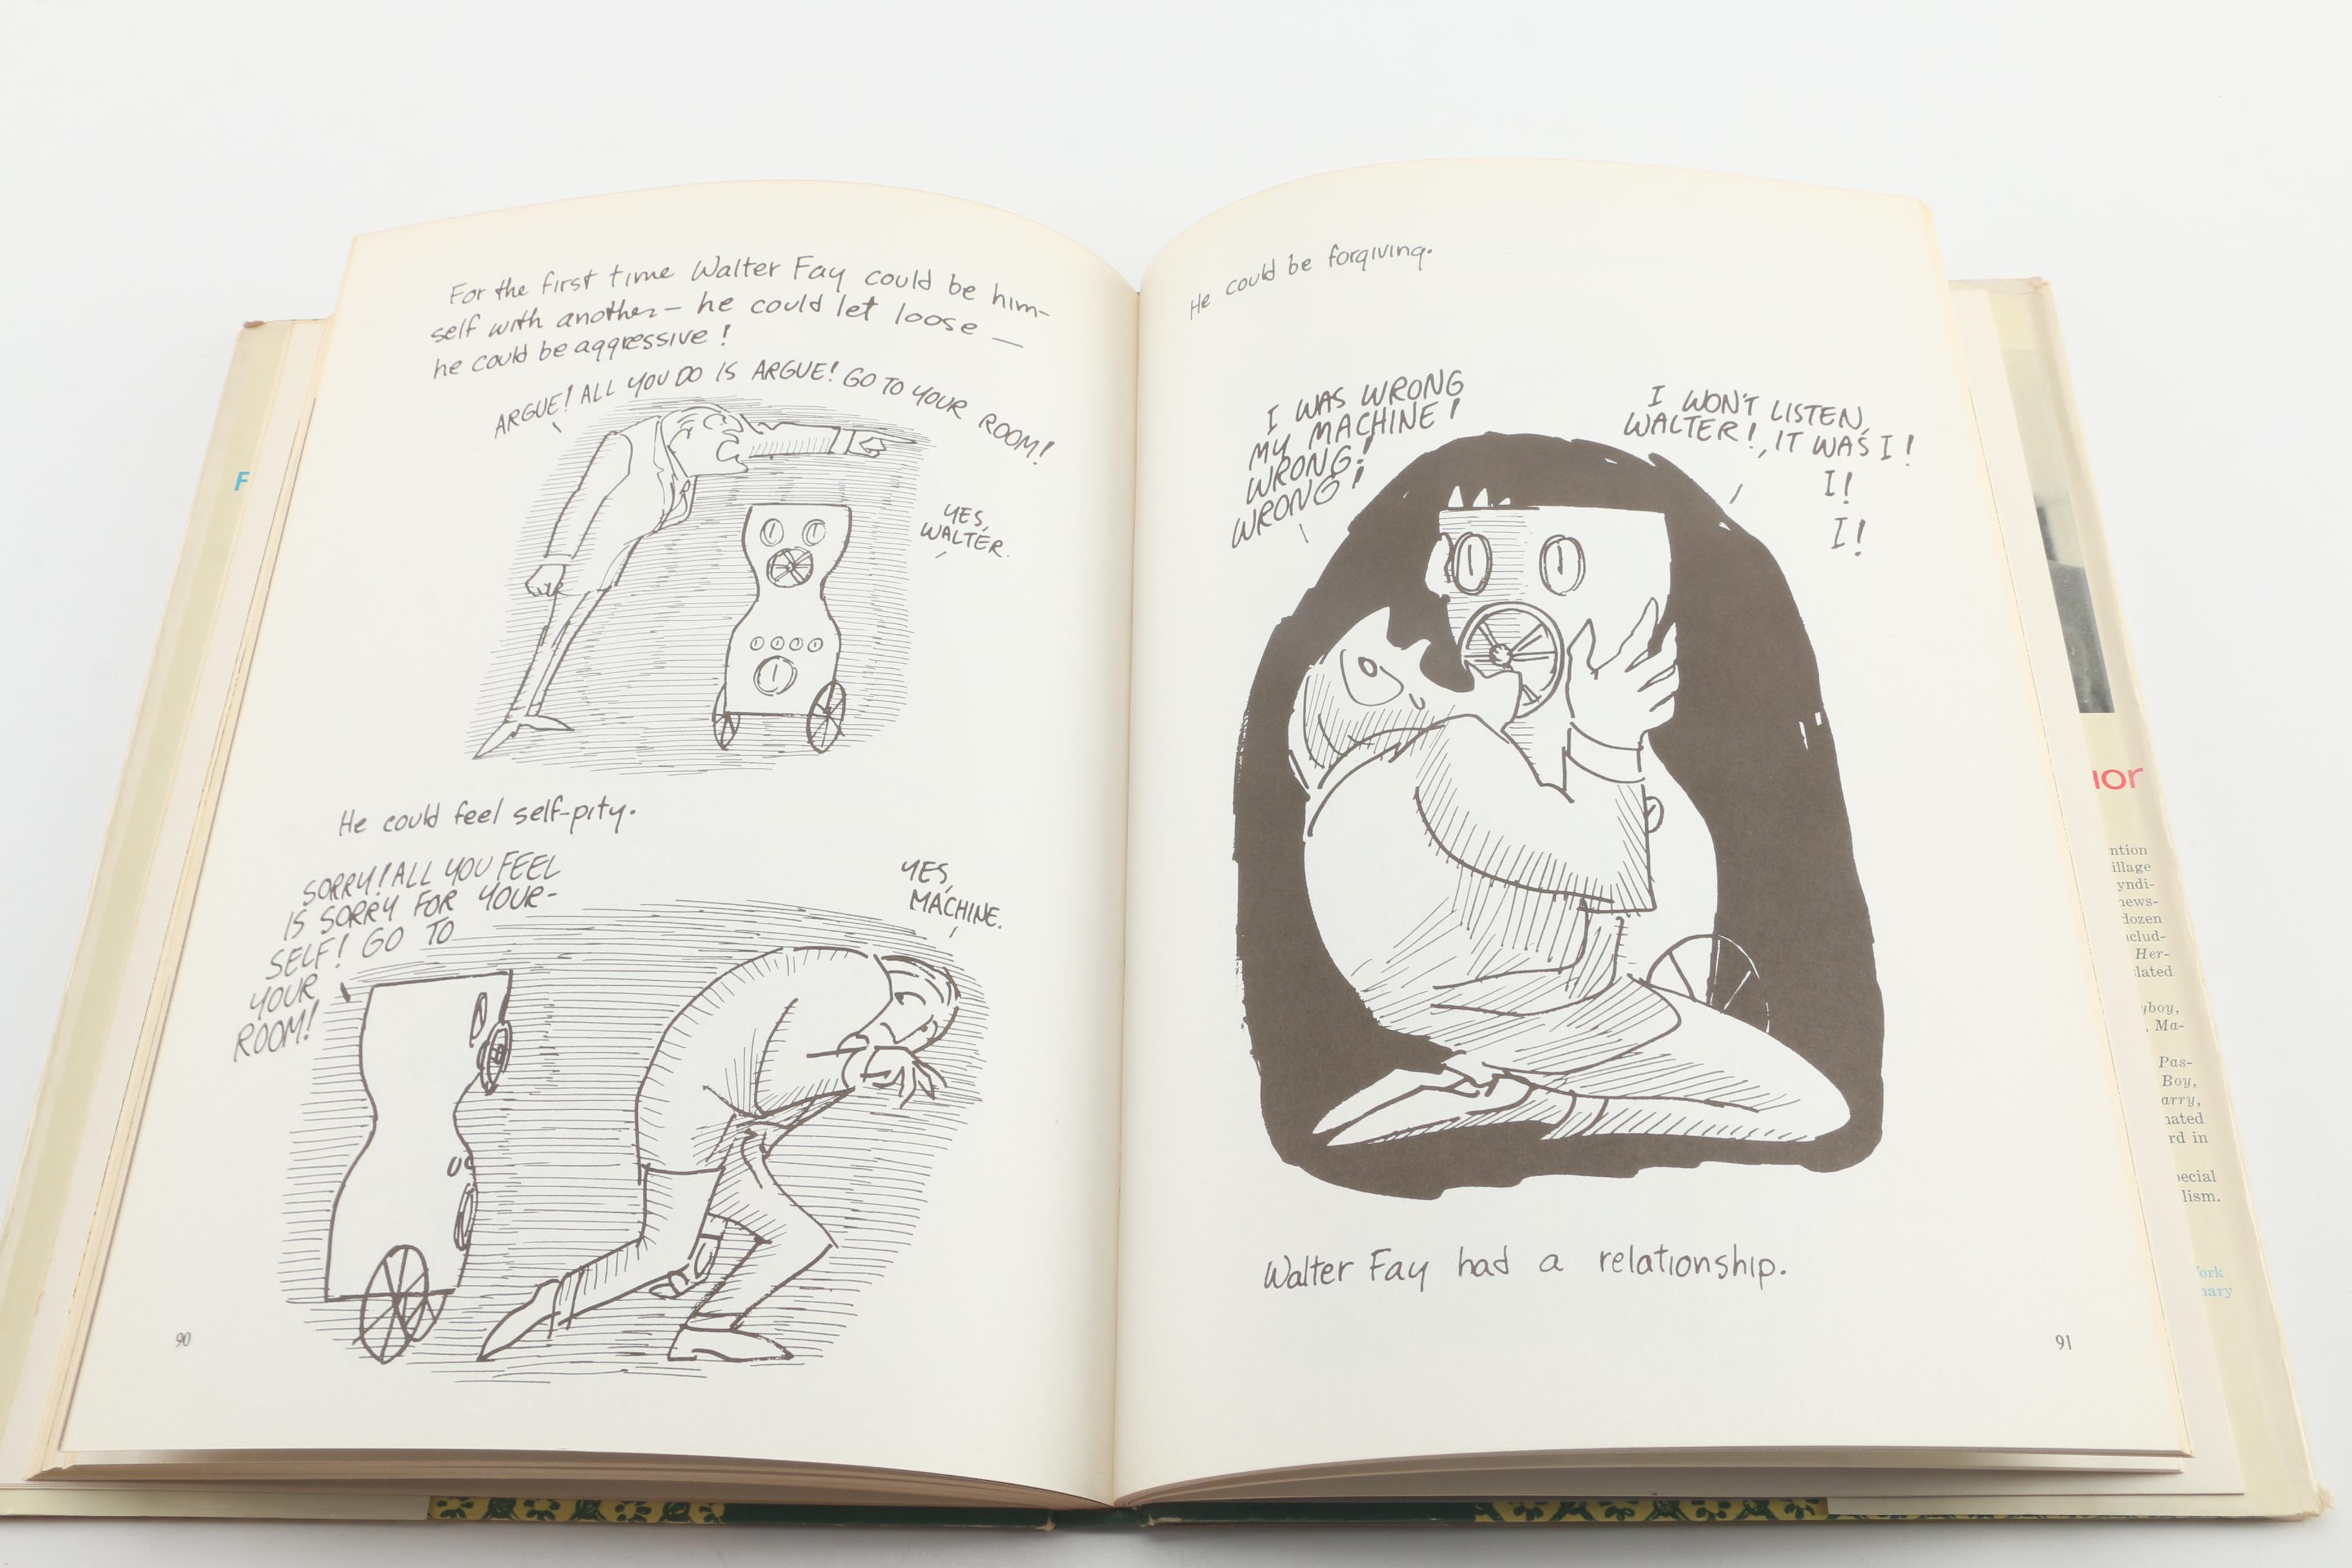 For the first time Walter Fay could be him-
self with another – he could let loose –
he could be aggressive!
ARGUE! ALL YOU DO IS ARGUE! GO TO YOUR ROOM!
YES,
WALTER.
He could feel self-pity.
SORRY! ALL YOU FEEL
IS SORRY FOR YOUR-
SELF! GO TO
YOUR
ROOM!
YES,
MACHINE.
90
He could be forgiving.
I WAS WRONG
MY MACHINE!
WRONG!
WRONG!
I WON'T LISTEN,
WALTER! IT WAS I!
I!
I!
Walter Fay had a relationship.
91
F
ior
ntion
illage
yndi-
news-
dozen
includ-
Her-
lated
yboy,
, Ma-
Pas-
Boy,
arry,
nated
rd in
pecial
lism.
ork
nary